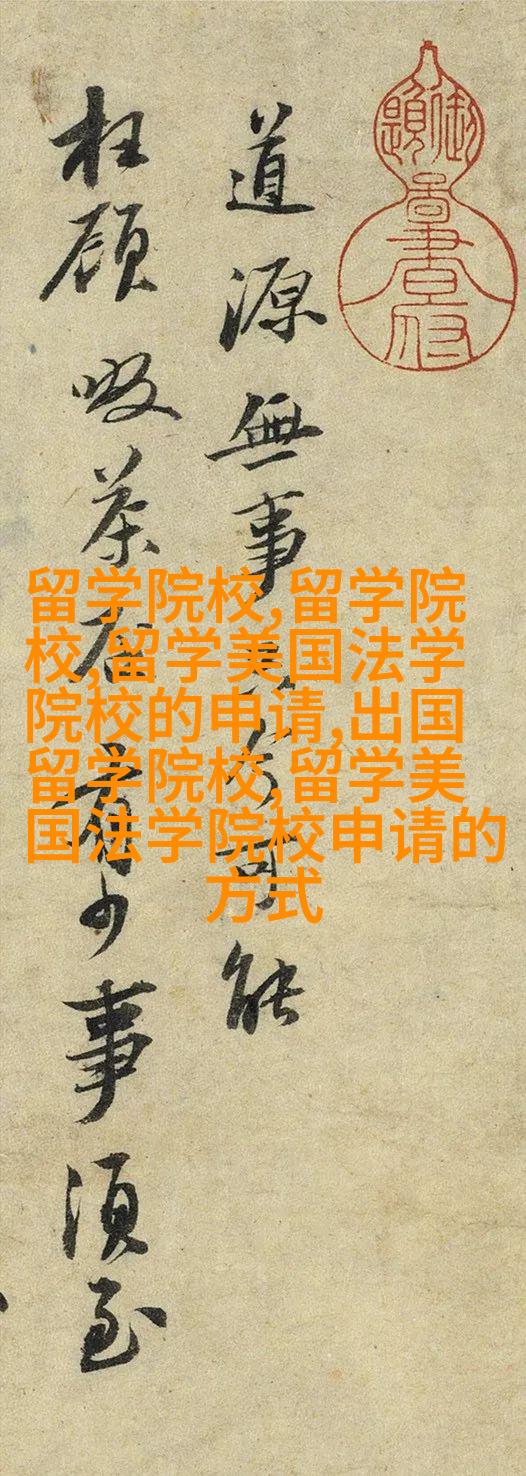 道源無事可能
枉顧啜茶否有少事須至
留学院校,留学院
校,留学美国法学
院校的申请,出国
留学院校,留学美
国法学院校申请的
方式